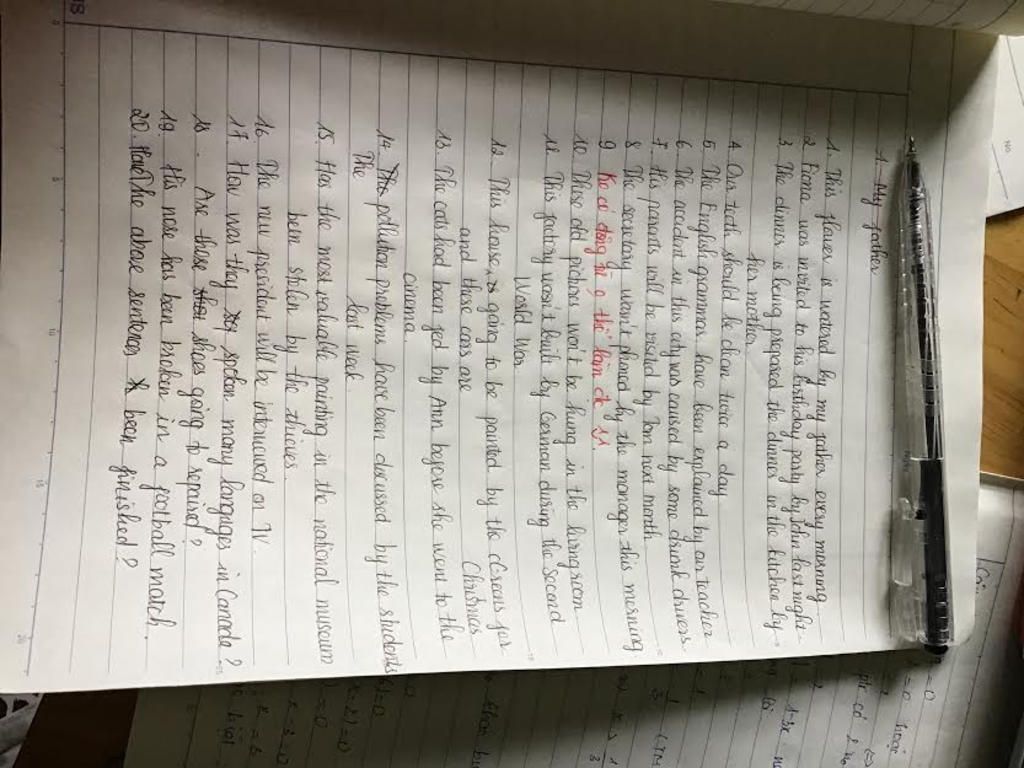 1. My father
1. This flower is watered by my father every morning
2 Fiona was invited to his birthday party by John last night
3. The dinner is being prepared the dinner in the kitchen by
her mother.
4. Our teeth should be clean twice a day
5. The English grammar have been explained by our teacher
6. The accident in this city was caused by some drunk drivers
7. His parents will be visited by Tom next month.
8 The secretary wasn't phoned by the manager this morning.
9 Ko có động từ, thế hiện đc
10. These old pictures won't be hung in the living room
11. This factory wasn't built by German during the Second
World War.
12. This house is going to be painted by the Greens for
and these cars are Christmas
13. The cats had been fed by Ann before she went to the
cinema
14. The pollution problems have been discussed by the students
The last week.
15. Has the most valuable painting in the national museum
been stolen by the thieves.
16. The new president will be interviewed on TV.
17. How was they spoken many languages in Canada?
18. Are those shoes going to repaired?
19. His nose has been broken in a football match.
20. Have The above sentences been finished?